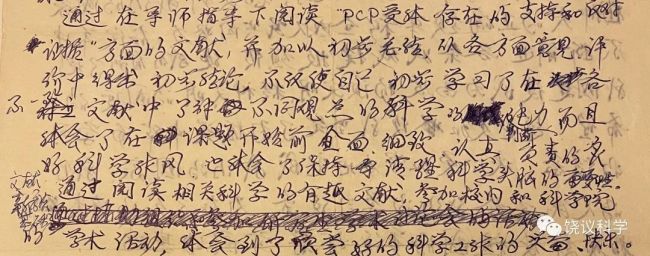 通过在导师指导下阅读"PCP受体存在的支持和反对
证据"方面的文献,并加以初步总结,从各方面意见评
价中得出初步结论,不仅使自己初步学习了在各
不一文献中了解不同观点的科学的能力而且
体会了在课题开始前全面、细致、认真、负责的良
好科学作风,也体会了保持清醒科学头脑的重要性。
通过阅读相关科学的有趣文献,参加校内和科学院
文献
的学术活动,体会到了从事好的科学工作的全面、快乐。
饶议科学